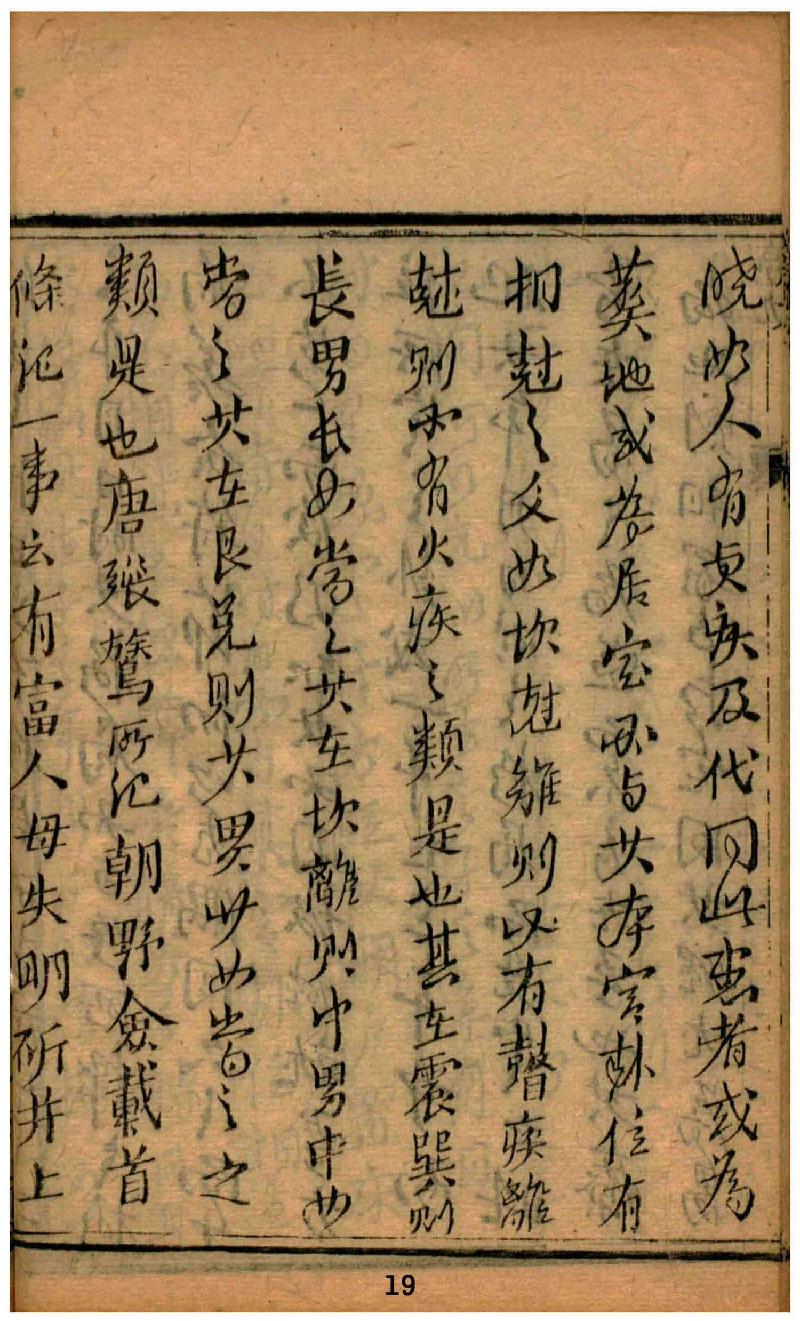 晓如人有贞疾及代同此患者或為
葬地或居室必与其本宫卦位有
相尅之爻如坎尅離则必有瞽疾離
尅则有火疾之類是也其在震巽则
長男长女當之其在坎離则中男中女
當之其在艮兑则少男少女當之之
類是也唐張鷟所记朝野僉載首
條记一事云有富人母失明斫井上
19